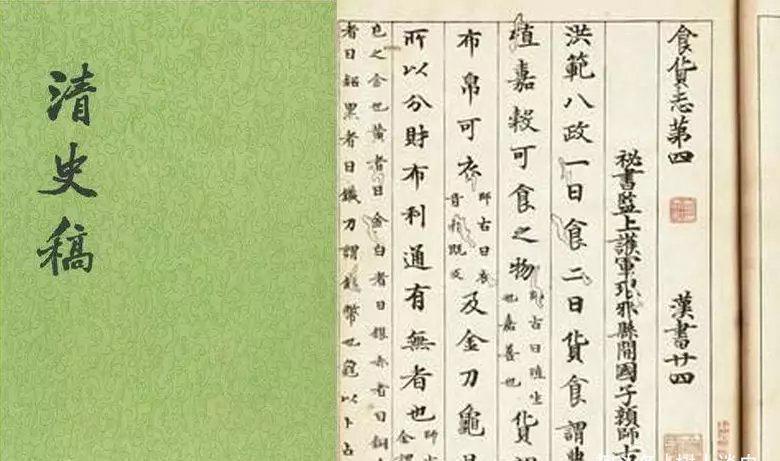 清史稿
食貨志第四 漢書廿四
秘書監上護軍琅邪縣開國子顏師古
洪範八政一曰食二曰貨食謂
殖嘉穀可食之物 師古曰殖生也嘉善也 貨
布帛可衣 師古曰衣音於既反 及金刀龜
所以分財布利通有無者也 師古
金謂
也金也黃者曰金白者曰銀赤者曰銅
者曰鉛黑者曰鐵刀謂錢幣也龜以卜占